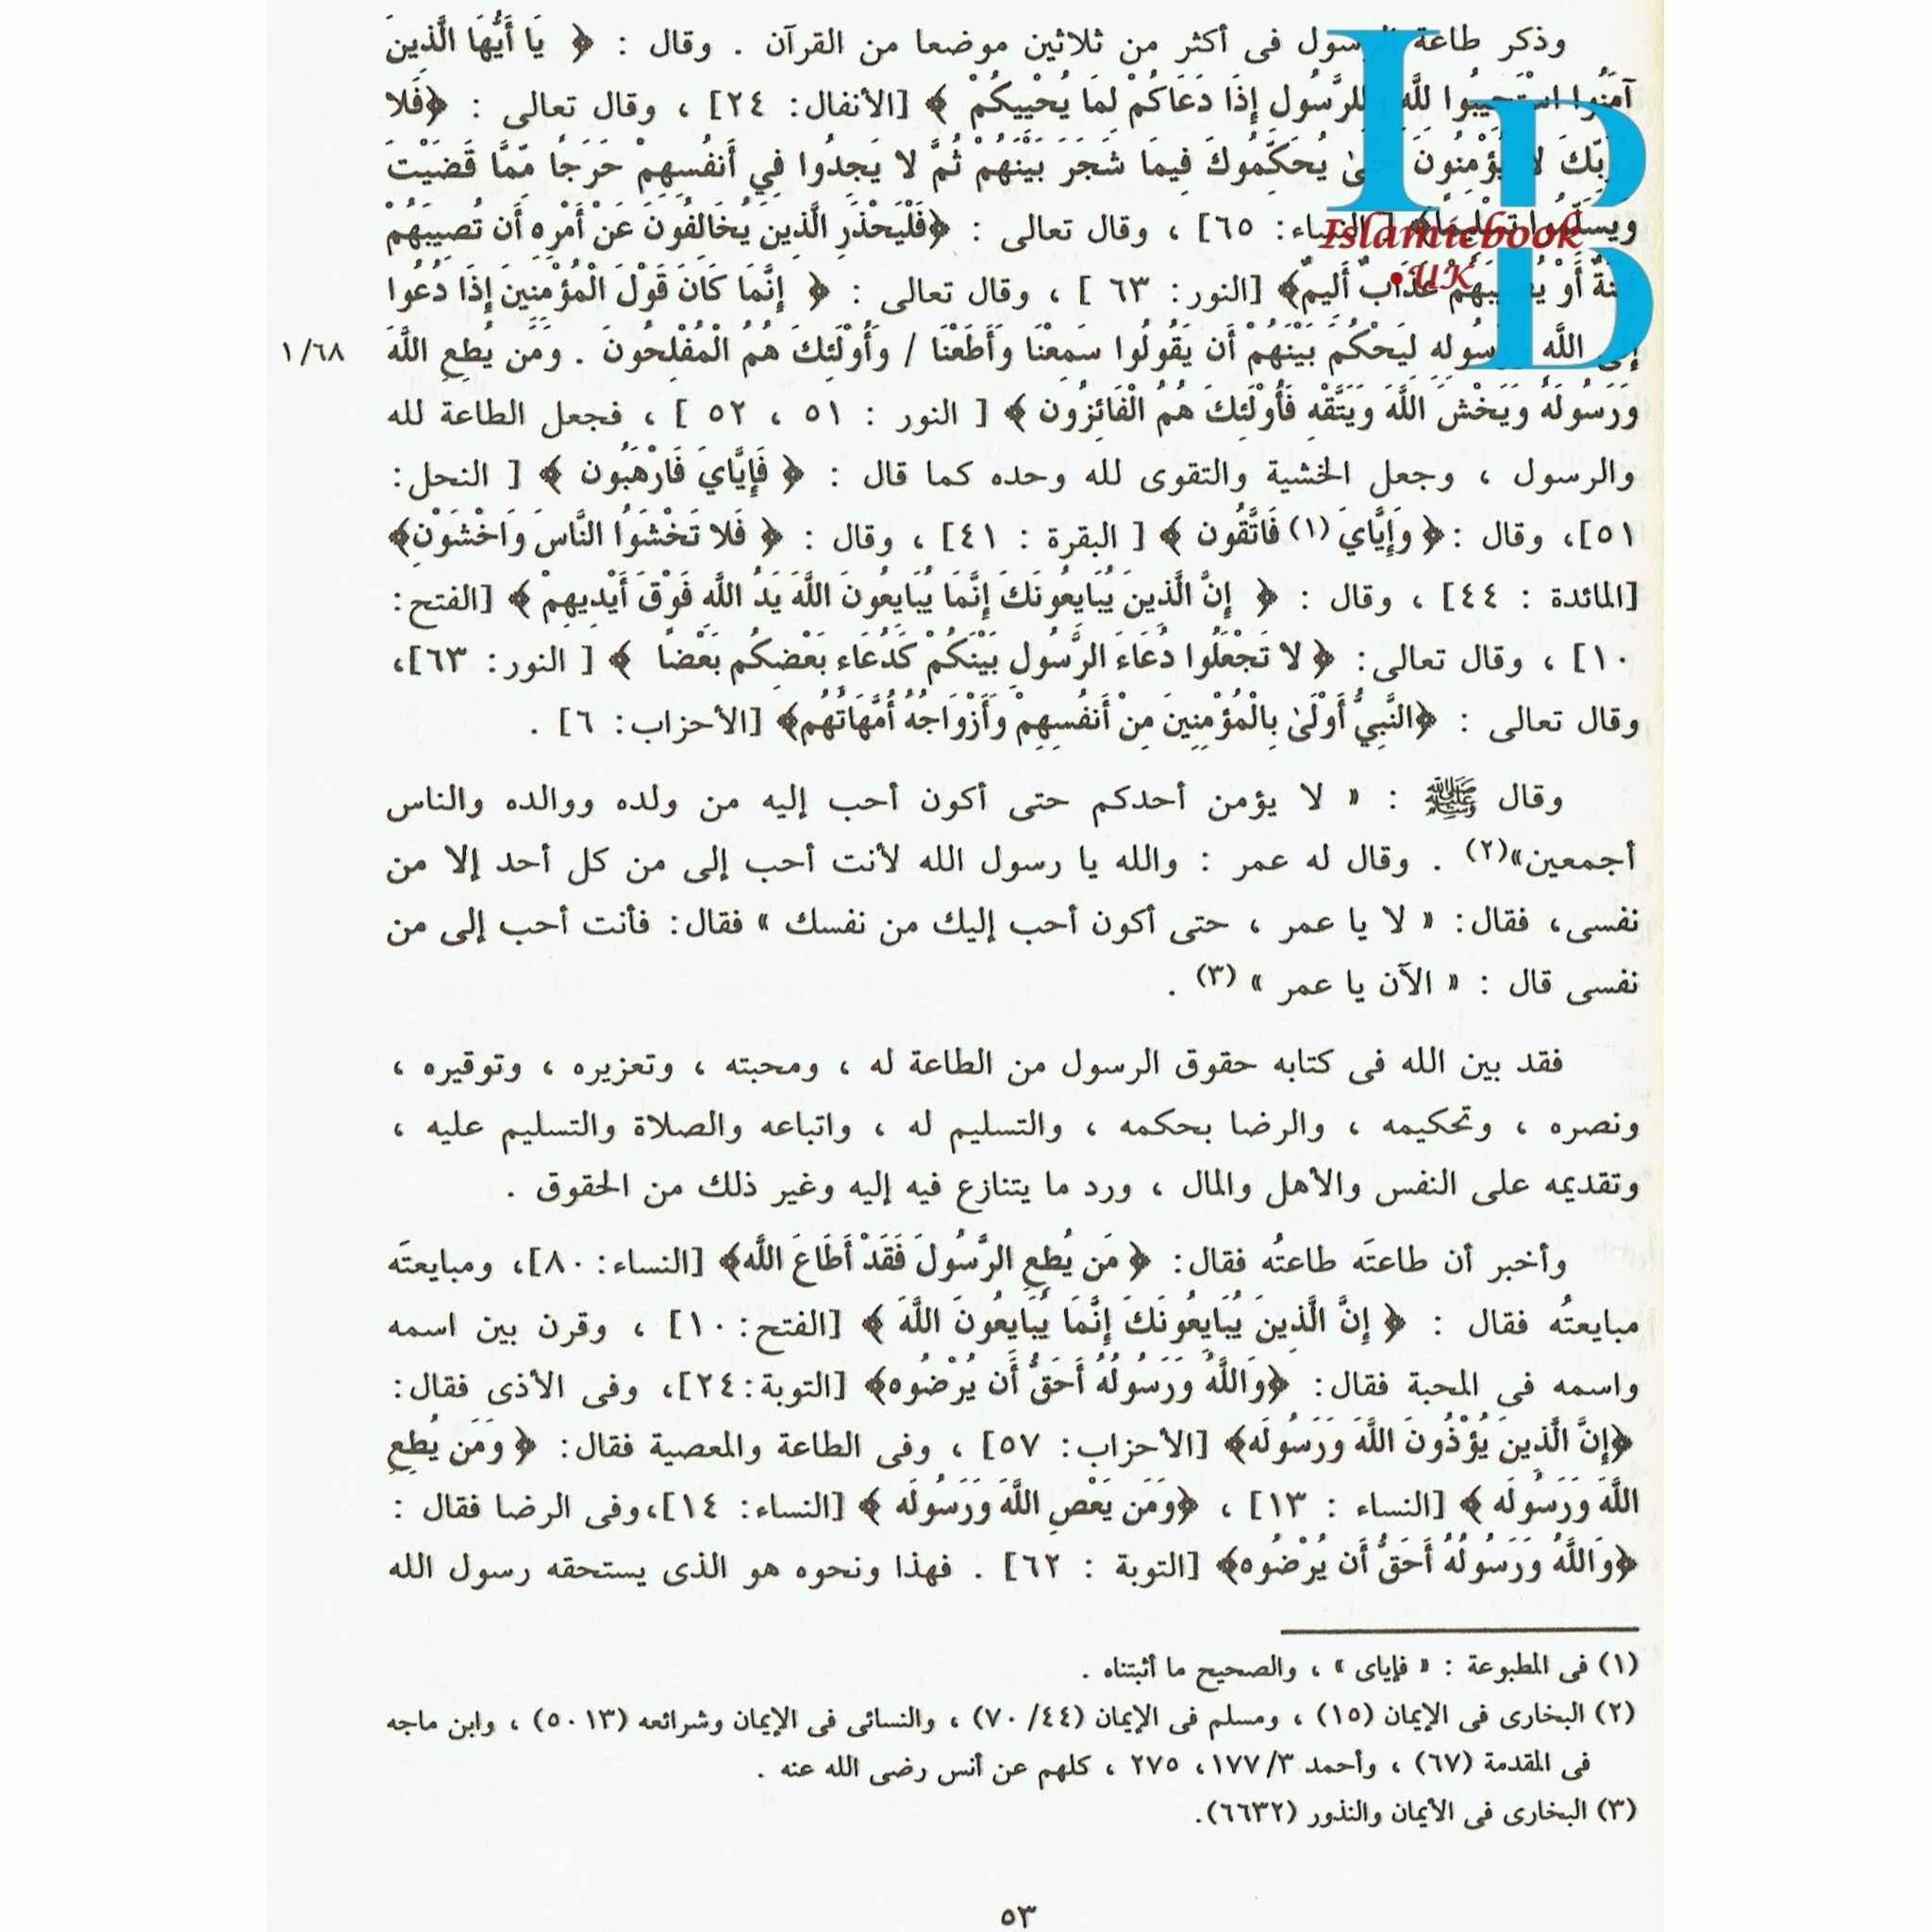 وذكر طاعة الرسول فى أكثر من ثلاثين موضعا من القرآن . وقال : ﴿ يَا أَيُّهَا الَّذِينَ
آمَنُوا اسْتَجِيبُوا لِلَّهِ وَلِلرَّسُولِ إِذَا دَعَاكُمْ لِمَا يُحْيِيكُمْ ﴾ [الأنفال: ٢٤] ، وقال تعالى : ﴿فَلا
وَرَبِّكَ لا يُؤْمِنُونَ حَتَّىٰ يُحَكِّمُوكَ فِيمَا شَجَرَ بَيْنَهُمْ ثُمَّ لا يَجِدُوا فِي أَنفُسِهِمْ حَرَجًا مِّمَّا قَضَيْتَ
وَيُسَلِّمُوا تَسْلِيمًا﴾ [النساء: ٦٥] ، وقال تعالى : ﴿فَلْيَحْذَرِ الَّذِينَ يُخَالِفُونَ عَنْ أَمْرِهِ أَن تُصِيبَهُمْ
فِتْنَةٌ أَوْ يُصِيبَهُمْ عَذَابٌ أَلِيمٌ﴾ [النور: ٦٣ ] ، وقال تعالى : ﴿ إِنَّمَا كَانَ قَوْلَ الْمُؤْمِنِينَ إِذَا دُعُوا
إِلَى اللَّهِ وَرَسُولِهِ لِيَحْكُمَ بَيْنَهُمْ أَن يَقُولُوا سَمِعْنَا وَأَطَعْنَا / وَأُوْلَئِكَ هُمُ الْمُفْلِحُونَ . وَمَن يُطِعِ اللَّهَ ١/٦٨
وَرَسُولَهُ وَيَخْشَ اللَّهَ وَيَتَّقْهِ فَأُوْلَئِكَ هُمُ الْفَائِزُون ﴾ [ النور : ٥١ ، ٥٢ ] ، فجعل الطاعة لله
والرسول ، وجعل الخشية والتقوى لله وحده كما قال : ﴿ فَإِيَّايَ فَارْهَبُون ﴾ [ النحل:
٥١]، وقال :﴿ وَإِيَّايَ (١) فَاتَّقُون ﴾ [ البقرة : ٤١] ، وقال : ﴿ فَلا تَخْشَوُا النَّاسَ وَاخْشَوْنِ﴾
[المائدة : ٤٤] ، وقال : ﴿ إِنَّ الَّذِينَ يُبَايِعُونَكَ إِنَّمَا يُبَايِعُونَ اللَّهَ يَدُ اللَّهِ فَوْقَ أَيْدِيهِمْ ﴾ [الفتح:
١٠] ، وقال تعالى: ﴿ لا تَجْعَلُوا دُعَاءَ الرَّسُولِ بَيْنَكُمْ كَدُعَاءِ بَعْضِكُم بَعْضًا ﴾ [ النور: ٦٣]،
وقال تعالى : ﴿النَّبِيُّ أَوْلَىٰ بِالْمُؤْمِنِينَ مِنْ أَنفُسِهِمْ وَأَزْوَاجُهُ أُمَّهَاتُهُم﴾ [الأحزاب: ٦] .
وقال ﷺ : « لا يؤمن أحدكم حتى أكون أحب إليه من ولده ووالده والناس
أجمعين»(٢) . وقال له عمر : والله يا رسول الله لأنت أحب إلى من كل أحد إلا من
نفسى، فقال: « لا يا عمر ، حتى أكون أحب إليك من نفسك » فقال: فأنت أحب إلى من
نفسى قال : « الآن يا عمر » (٣) .
فقد بين الله فى كتابه حقوق الرسول من الطاعة له ، ومحبته ، وتعزيره ، وتوقيره ،
ونصره ، وتحكيمه ، والرضا بحكمه ، والتسليم له ، واتباعه والصلاة والتسليم عليه ،
وتقديمه على النفس والأهل والمال ، ورد ما يتنازع فيه إليه وغير ذلك من الحقوق .
وأخبر أن طاعتَه طاعتُه فقال: ﴿ مَن يُطِعِ الرَّسُولَ فَقَدْ أَطَاعَ اللَّه﴾ [النساء: ٨٠]، ومبايعتَه
مبايعتُه فقال : ﴿ إِنَّ الَّذِينَ يُبَايِعُونَكَ إِنَّمَا يُبَايِعُونَ اللَّهَ ﴾ [الفتح: ١٠] ، وقرن بين اسمه
واسمه فى المحبة فقال: ﴿وَاللَّهُ وَرَسُولُهُ أَحَقُّ أَن يُرْضُوه﴾ [التوبة:٢٤]، وفى الأذى فقال:
﴿إِنَّ الَّذِينَ يُؤْذُونَ اللَّهَ وَرَسُولَه﴾ [الأحزاب: ٥٧] ، وفى الطاعة والمعصية فقال: ﴿ وَمَن يُطِعِ
اللَّهَ وَرَسُولَه ﴾ [النساء : ١٣] ، ﴿وَمَن يَعْصِ اللَّهَ وَرَسُولَه ﴾ [النساء: ١٤]،وفى الرضا فقال :
﴿وَاللَّهُ وَرَسُولُهُ أَحَقُّ أَن يُرْضُوه﴾ [التوبة : ٦٢] . فهذا ونحوه هو الذى يستحقه رسول الله
(١) فى المطبوعة : « فإياى » ، والصحيح ما أثبتناه .
(٢) البخارى فى الإيمان (١٥) ، ومسلم فى الإيمان (٧٠/٤٤) ، والنسائى فى الإيمان وشرائعه (٥٠١٣) ، وابن ماجه
فى المقدمة (٦٧) ، وأحمد ١٧٧/٣، ٢٧٥ ، كلهم عن أنس رضى الله عنه .
(٣) البخارى فى الأيمان والنذور (٦٦٣٢).
٥٣
IBD
Islamicbook
.UK